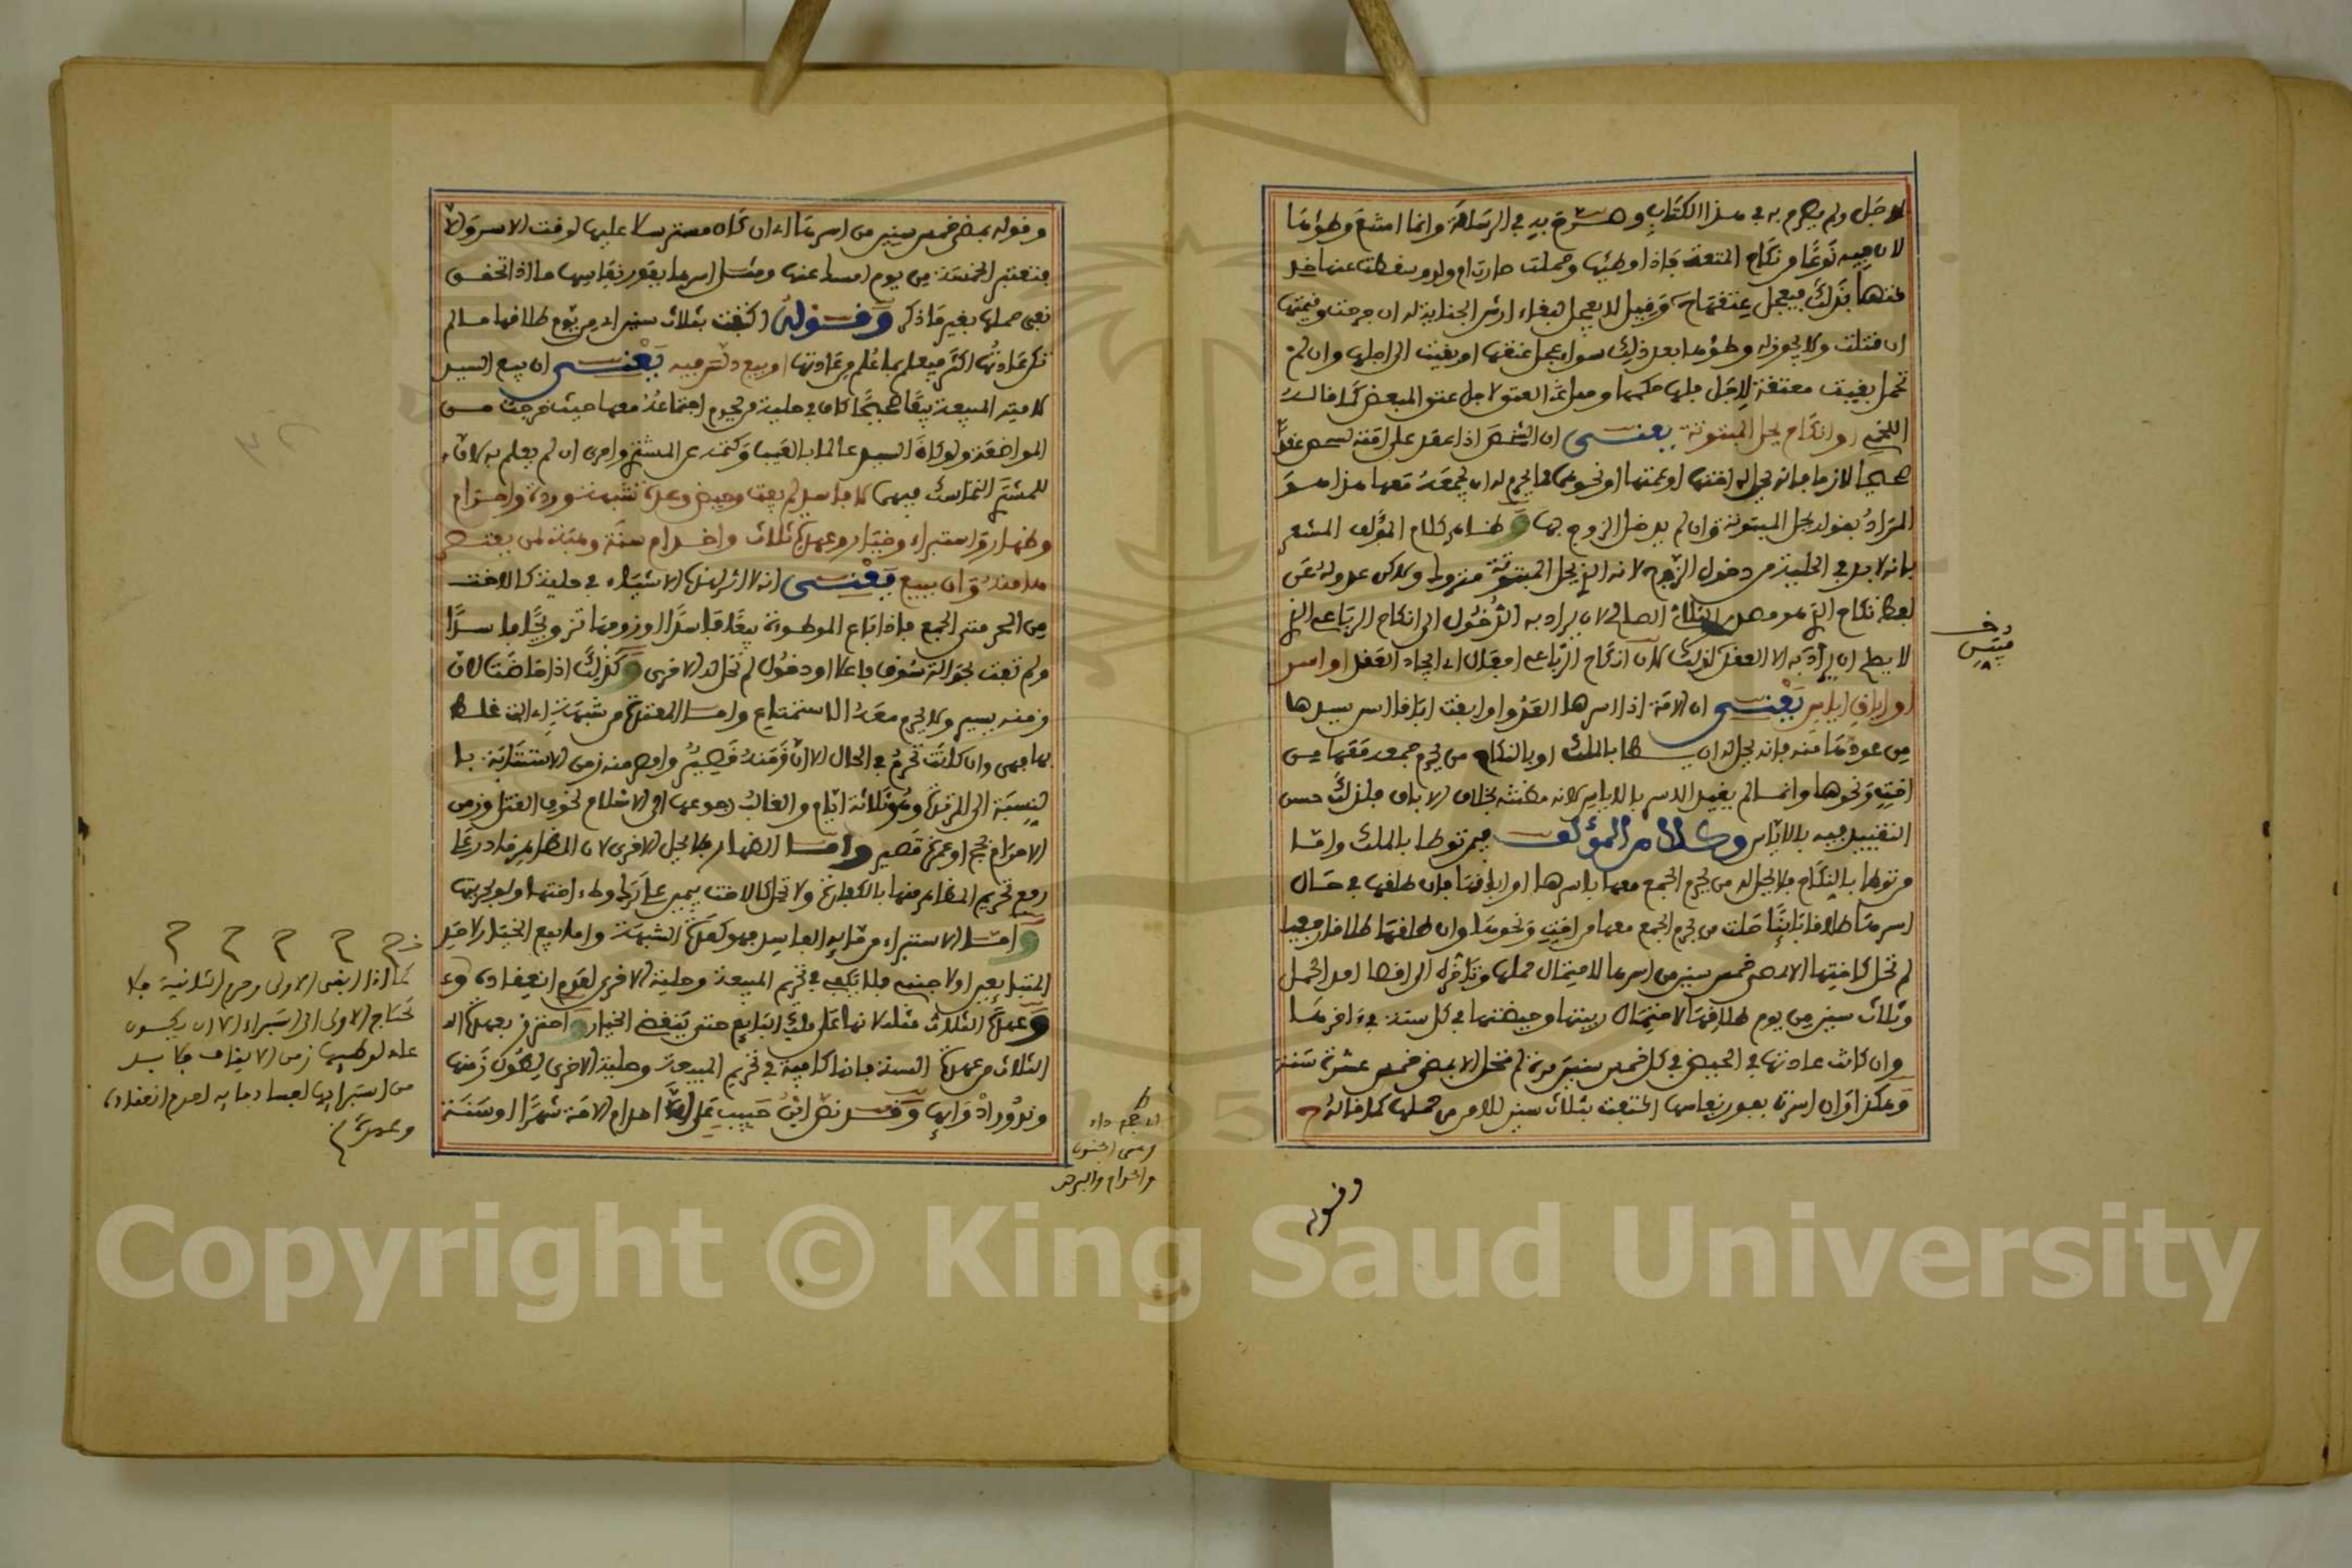 للاجل ولم يصرح به في هذا الكتاب وصرح به في الرسالة وانما امتنع وطؤها
لان فيه نوعا من نكاح المتعة فاذا وطئها وحملت صارت ام ولد وسقطت عنها خد
متها بذلك فيعجل عتقها ح وقيل لا يعجل لبقاء ارش الجناية له ان جرحت وقيمتها
ان قتلت ولا يجوز له وطؤها بعد ذلك سواء عجل عتقها او بقيت الى اجلها وان لم
تحمل بقيت معتقة للاجل
اللخمي او انكاح يحل المبتوتة يعني ان الشخص اذا عقد على امته لشخص عقدا
صحيحا لازما فانه يحل له اختها او عمتها او نحوهما مما يحرم له ان يجمعه معها هذا هو
المراد بقوله يحل المبتوتة وان لم يدخل الزوج بها وظاهر كلام المؤلف المشعر
بانه لابد في الحلية من دخول الزوج لانه الذي يحل المبتوتة متروك ولاكن عدوله عن
لفظ نكاح الذي هو مصدر الثلاثي الصالح لان يراد به الدخول الى انكاح الرباعي الذي
لا يصلح ان يراد به الا العقد لذلك لان انكاح الرباعي افعال اي ايجاد العقد او اسر
او اباق اياس يعني ان الامة اذا اسرها العدو او ابقت اباقا ايس سيدها
من عودها منه فانه يحل له ان يطأ بالملك او بالنكاح من يحرم جمعه معها من
اخت ونحوها وانما لم يقيد الاسر بالاياس لانه مظنته بخلاف الاباق فلذلك حسن
التقييد فيه بالاياس وكلام المؤلف فيمن توطا بالملك واما
من توطا بالنكاح فلا يحل له من يحرم الجمع معها باسرها او اباقها فان طلقها في حال
اسرها طلاقا بائنا حلت من يحرم الجمع معها من اخت ونحوها وان طلقها طلاقا رجعيا
لم تحل كاختها الا بمضي خمس سنين من اسرها لاحتمال حملها وتاخره الى اقصا امد الحمل
وثلاث سنين من يوم طلاقها لاحتمال ريبتها وحيضتها في كل سنة في ءاخرها
وان كانت عادتها في الحيض في كل خمس سنين مرة لم تحل الا بمضي خمس عشرة سنة
وهكذا وان اسرت بفور نفاسها اكتفت بثلاث سنين للامن من حملها كما قاله ح
وقوله
وقوله بمضي خمس سنين من اسرها اي ان كان مسترسلا عليها لوقت الاسر والا
فتعتبر الخمسة من يوم امسك عنها ومثل اسرها بفور نفاسها ما اذا تحقق
نفي حملها بغير ما ذكر وقوله اكتفت بثلاث سنين اي من يوم طلاقها ما لم
تكن عادتها اكثر فيعمل بما علم من عادتها او بيع دلس فيه يعني ان بيع السيد
لامته المبيعة بيعا صحيحا كاف في حلية من يحرم اجتماعه معها حيث خرجت من
المواضعة ولو كان السيد عالما بالعيب وكتمه عن المشتري واحرى ان لم يعلم به لان
للمشتري التماسك فيها لا فاسد لم يفت وحيض وعدة شبهة وردة واحرام
وظهار واستبراء وخيار وعهدة ثلاث واخدام سنة وهبة لمن يعتصر
ها منه وان ببيع يعني انه لا اثر لهذه الاشياء في حلية كالاخت
من يحرم الجمع فاذا باع الموطوءة بيعا فاسدا او زوجها تزويجا فاسدا
ولم تفت بحوالة سوق فاعلا او دخول لم تحل له الاخرى وكذلك اذا حاضت لان
زمنه يسير ولا يحرم معه الاستمتاع واما المعتدة من شبهة
بها فهي وان كانت تحرم في الحال الا ان زمنه قصير واقصر منه زمن الاستتابة با
لنسبة الى المرتدة وهو ثلاثة ايام والغالب رجوعها الى الاسلام لخوف القتل وزمن
الاحرام بحج او عمرة قصير واما الظهار فلا يحل الاخرى لان المظاهر قادر على
رفع تحريم المظاهر منها بالكفارة ولا تحل كالاخت بيمين على ترك وطء اختها ولو بحريتها
واما الاستبراء من مائه الفاسد فهو كعدة الشبهة واما بيع الخيار لاحد
المتبايعين او لاجنبي فلا يكفي في تحريم المبيعة وحلية الاخرى لعدم انعقاده
وعهدة الثلاث مثله لانها على ملك البايع حتى ينقضي الخيار واحترز بعهدة
الثلاث من عهدة السنة فانها كافية في تحريم المبيعة وحلية الاخرى لطول زمنها
وندور ادوائها وقد نص ابن حبيب على ان اخدام الامة شهرا او سنة
كما اذا ابقى الاولى وحرم الثانية فلا
تحتاج الاولى الى استبراء الا ان يكون
عاد لوطيها زمن الايقاف فلا بد
من استبرائها لفساد مائه